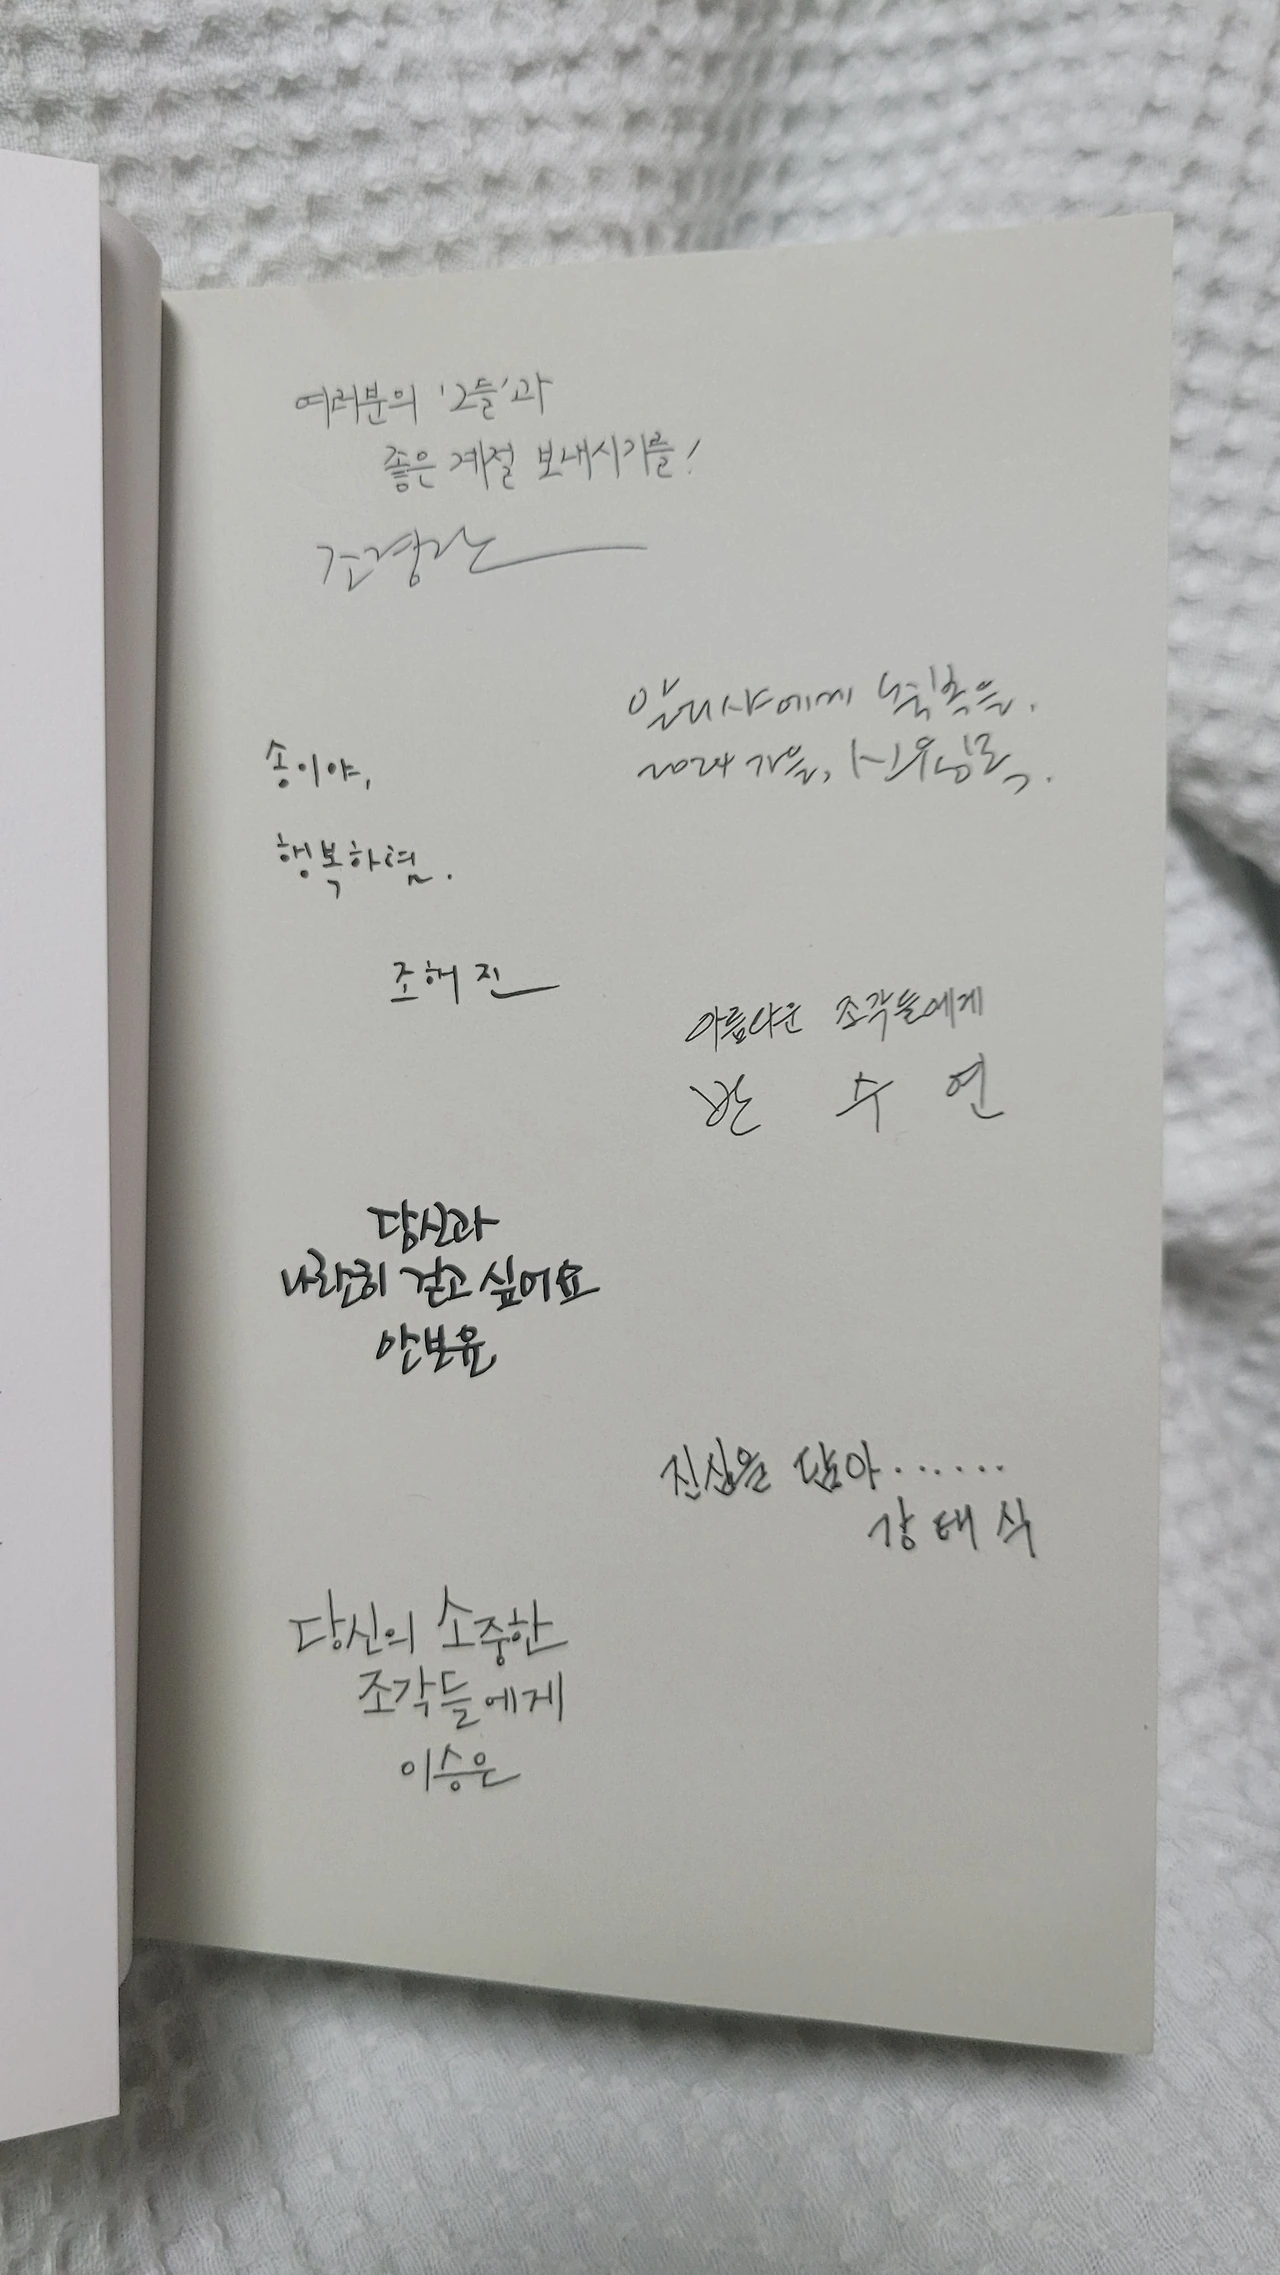 여러분의 '그들'과
좋은 계절 보내시기를!
조경란
알리샤에게 축복을.
2024 가을, 신용목.
송이야,
행복하렴.
조해진
아름다운 조각들에게
반 수 연
당신과
나란히 걷고 싶어요
안보윤
진심을 담아······
강 태 식
당신의 소중한
조각들에게
이승은